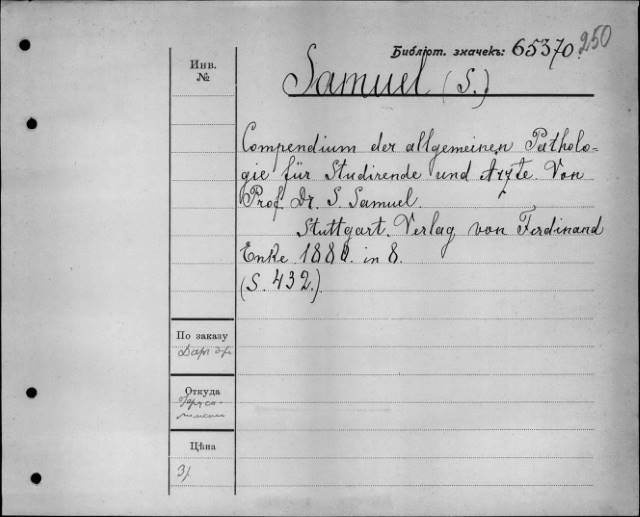 Библіот. значекъ: 65370. 250
Инв.
№
Samuel (S.)
Compendium der allgemeinen Patholo-
gie für Studirende und Ärzte. Von
Prof. Dr. S. Samuel.
Stuttgart. Verlag von Ferdinand
Enke 1880. in 8.
(S. 432.)
По заказу
Даръ
Откуда
Цѣна
3р